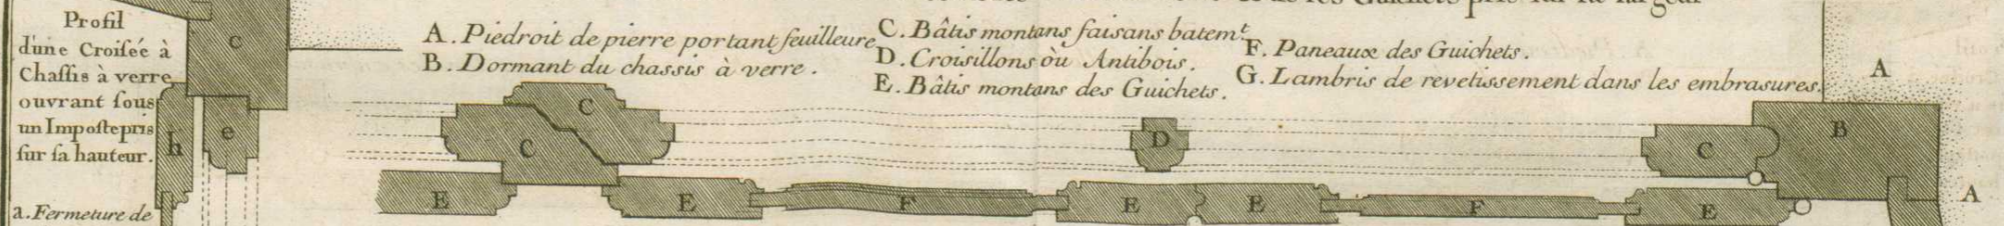 des Guichets pris sur sa largeur
Profil
d'une Croisée à
Chassis à verre
ouvrant sous
un Imposte pris
sur sa hauteur.
a. Fermeture de
A. Piedroit de pierre portant feuilleure
B. Dormant du chassis à verre.
C. Bâtis montans faisans batemt.
D. Croisillons où Antibois.
E. Bâtis montans des Guichets.
F. Paneaux des Guichets.
G. Lambris de revetissement dans les embrasures.
c
h
e
C
C
D
C
B
A
A
E
E
F
E
E
F
E